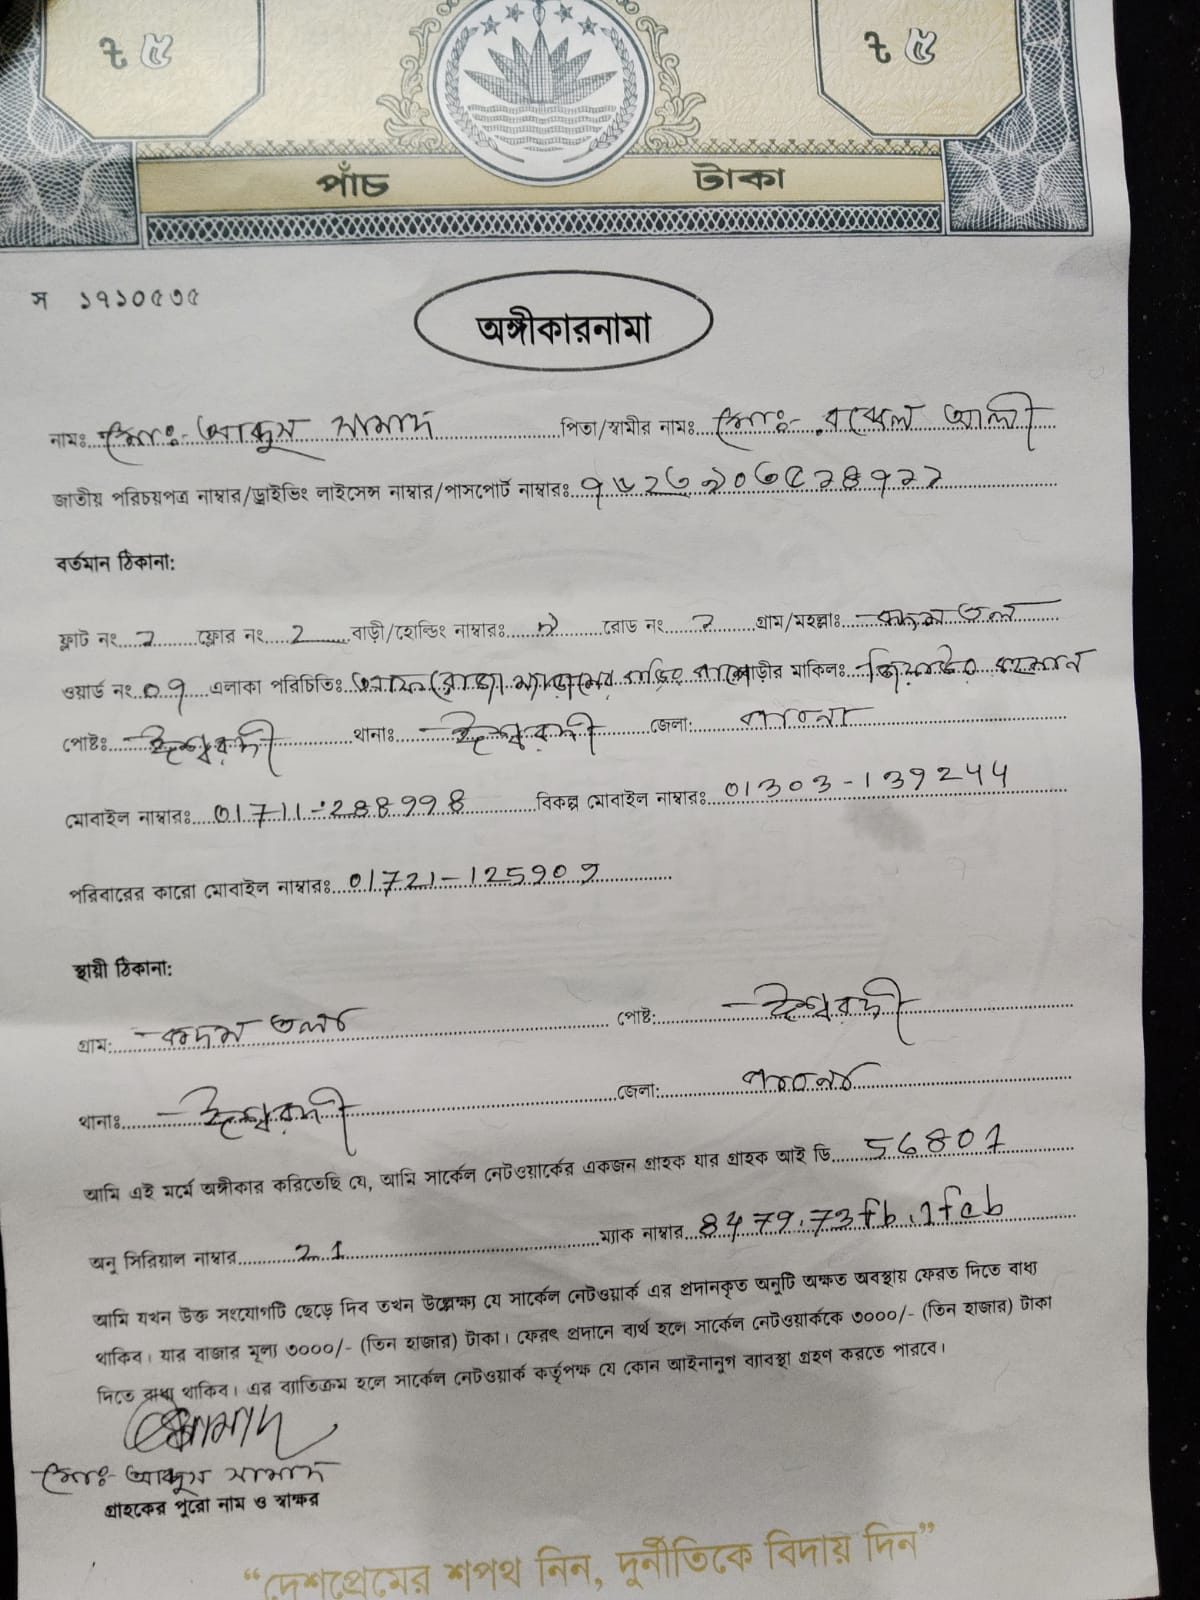 ৳ ৫ ৳ ৫
পাঁচ টাকা
স ১৭১০৫৩৫
অঙ্গীকারনামা
নামঃ মোঃ- আব্দুস সামাদ পিতা/স্বামীর নামঃ মোঃ- আলী
জাতীয় পরিচয়পত্র নাম্বার/ড্রাইভিং লাইসেন্স নাম্বার/পাসপোর্ট নাম্বারঃ
বর্তমান ঠিকানা:
ফ্লাট নং ফ্লোর নং বাড়ী/হোল্ডিং নাম্বারঃ রোড নং গ্রাম/মহল্লাঃ
ওয়ার্ড নং ০৭ এলাকা পরিচিতিঃ বাড়ীর মালিকঃ রহমান
পোষ্টঃ ঈশ্বরদী থানাঃ ঈশ্বরদী জেলা: পাবনা
মোবাইল নাম্বারঃ 01711-288998 বিকল্প মোবাইল নাম্বারঃ 01303-139244
পরিবারের কারো মোবাইল নাম্বারঃ 01721-125909
স্থায়ী ঠিকানা:
গ্রাম: কদম তলা পোষ্ট: ঈশ্বরদী
থানাঃ ঈশ্বরদী জেলা: পাবনা
আমি এই মর্মে অঙ্গীকার করিতেছি যে, আমি সার্কেল নেটওয়ার্কের একজন গ্রাহক যার গ্রাহক আই ডি 56801
অনু সিরিয়াল নাম্বার 21 ম্যাক নাম্বার 8479.73fb.1feb
আমি যখন উক্ত সংযোগটি ছেড়ে দিব তখন উল্লেক্ষ্য যে সার্কেল নেটওয়ার্ক এর প্রদানকৃত অনুটি অক্ষত অবস্থায় ফেরত দিতে বাধ্য
থাকিব। যার বাজার মূল্য ৩০০০/- (তিন হাজার) টাকা। ফেরৎ প্রদানে ব্যর্থ হলে সার্কেল নেটওয়ার্ককে ৩০০০/- (তিন হাজার) টাকা
দিতে বাধ্য থাকিব। এর ব্যাতিক্রম হলে সার্কেল নেটওয়ার্ক কর্তৃপক্ষ যে কোন আইনানুগ ব্যাবস্থা গ্রহণ করতে পারবে।
সামাদ
মোঃ- আব্দুস সামাদ
গ্রাহকের পুরো নাম ও স্বাক্ষর
“দেশপ্রেমের শপথ নিন, দুর্নীতিকে বিদায় দিন”